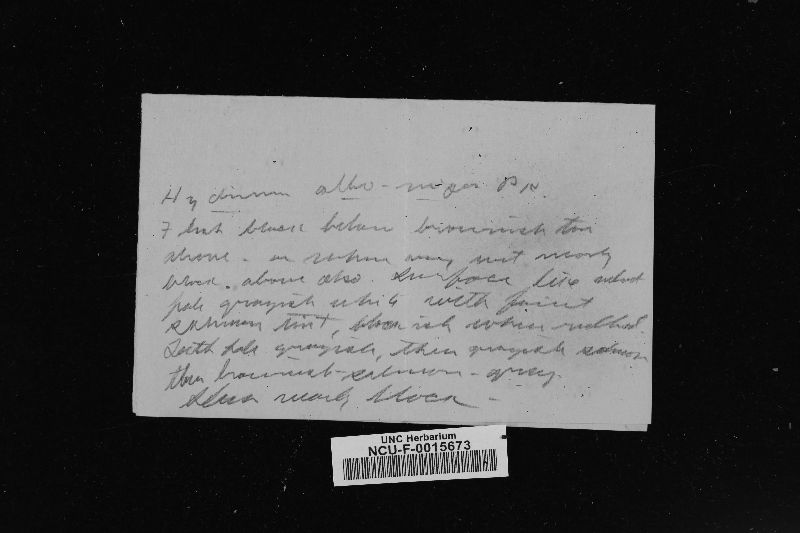 Hydnum albo-niger Pk
Flesh black below brownish tan
above - or when very wet nearly
black above also. Surface like velvet
pale grayish white with faint
salmon tint, blackish when rubbed.
Teeth pale grayish, then grayish salmon
then brownish-salmon-gray
Stem nearly black -
UNC Herbarium
NCU-F-0015673